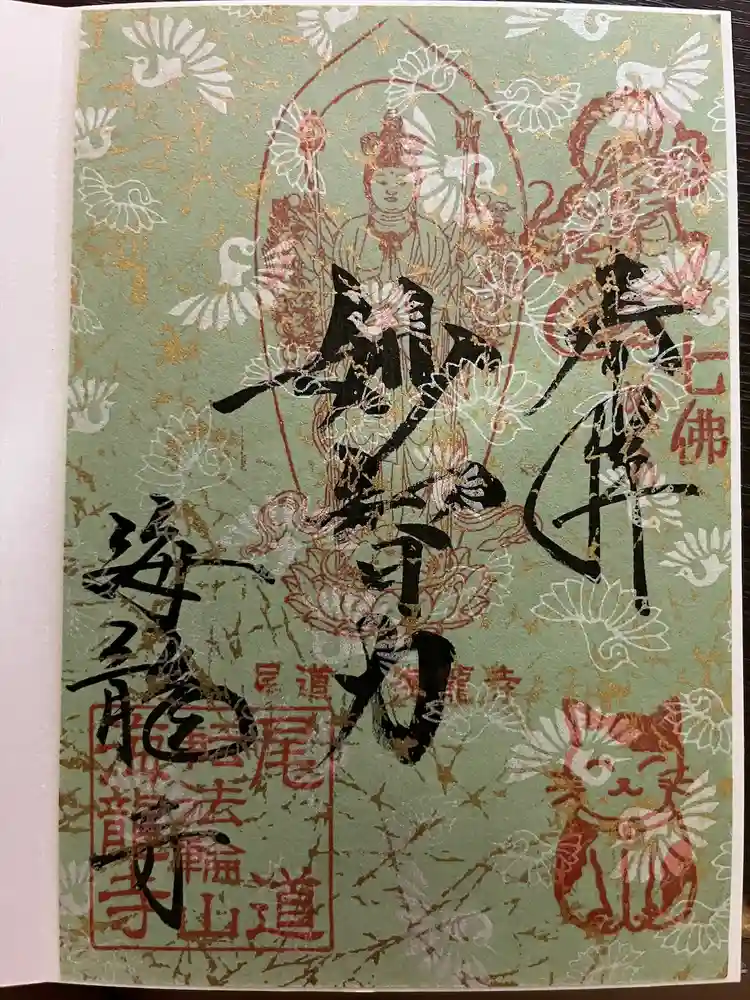 奉拝
七佛
妙智力
尾道 海龍寺
海龍寺
尾道
転法輪山
海龍寺